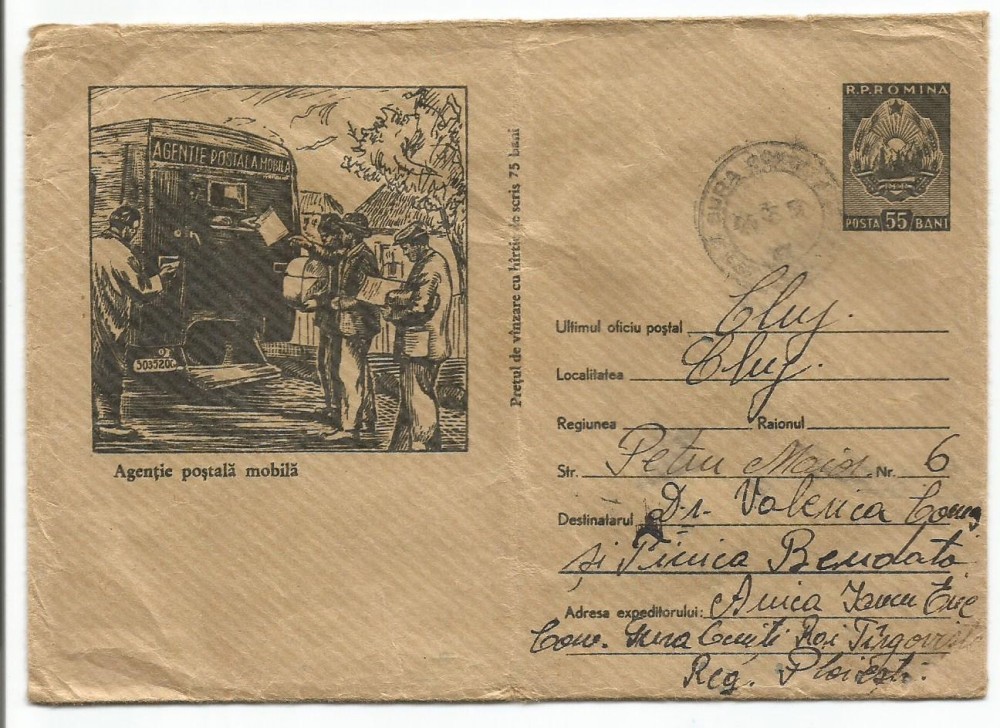 AGENTIE POSTALA MOBILĂ
50352OC
Agenție poștală mobilă
Prețul de vînzare cu hîrtie de scris 75 bani
R.P.ROMINA
POSTA 55 BANI
GURA
Ultimul oficiu poștal Cluj.
Localitatea Cluj.
Regiunea Raionul
Str. Petru Maior Nr. 6
Destinatarul Dr. Valerica
și Tinica
Adresa expeditorului: Anica Iancu Ene
Com. Gura Ocniți Roi. Tîrgoviște
Reg. Ploiești.